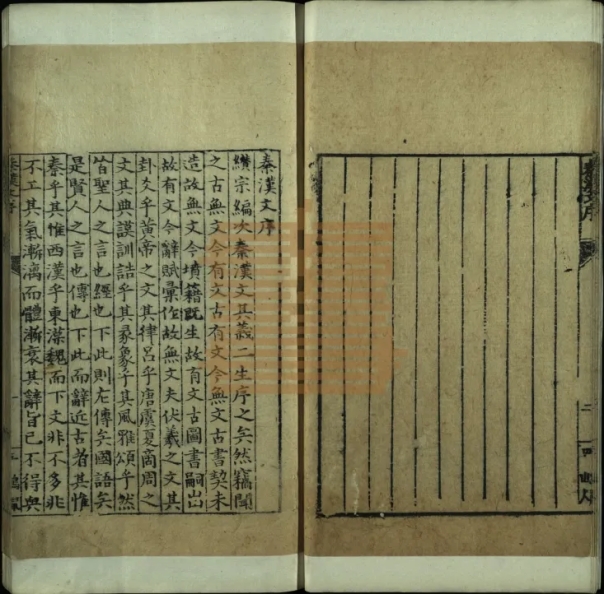 秦漢文序
纘宗編次秦漢文其義二生序之矣然竊聞
之古無文今有文古有文今無文古書契未
造故無文今墳籍既生故有文古圖書嗣出
故有文今辭賦彙作故無文夫伏羲之文其
卦爻乎黃帝之文其律呂乎唐虞夏商周之
文其典謨訓誥乎其彖象乎其風雅頌乎然
皆聖人之言也經也下此則左傳矣國語矣
是賢人之言也傳也下此而辭近古者其惟
秦乎其惟西漢乎東漢魏而下文非不多非
不工其氣漸漓而體漸衰其辭旨已不得與
秦漢文序